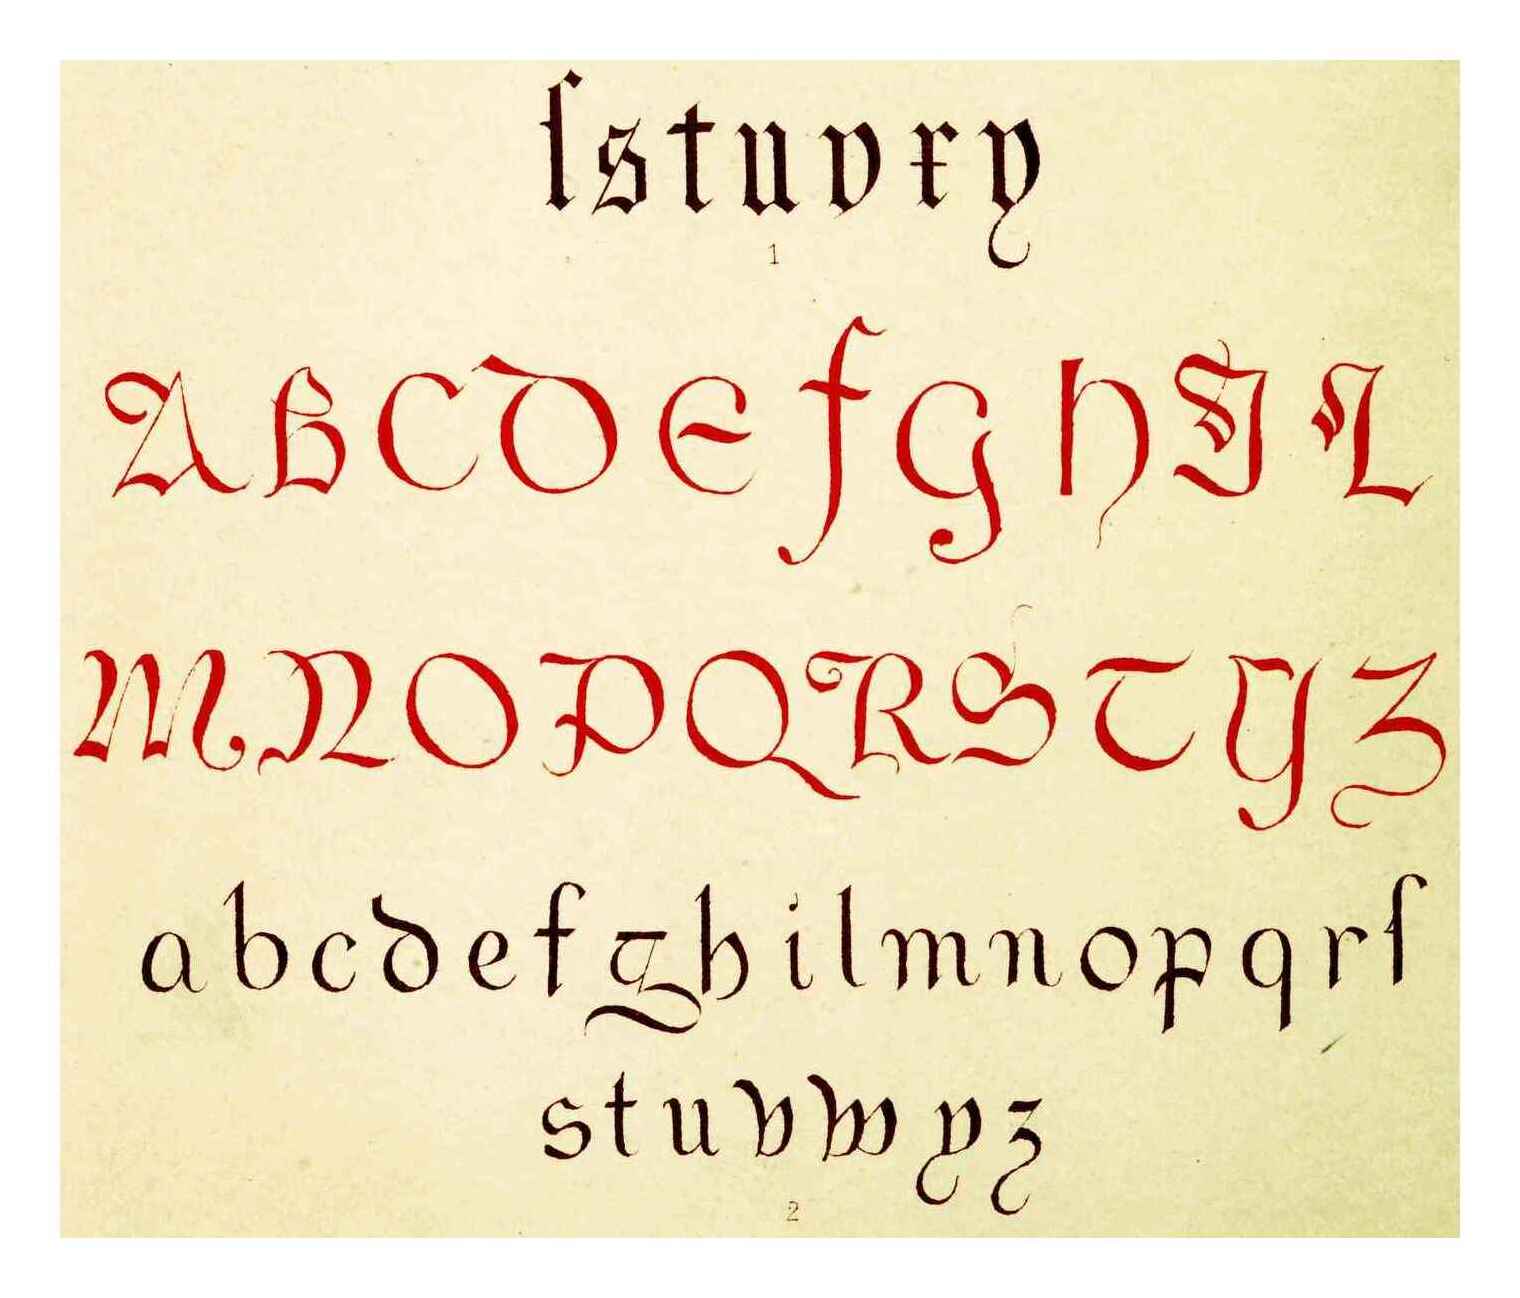 ſstuvxy
1
ABCDEfGHIL
MNOPQRSTYZ
abcdefghilmnopqrſ
stuvwyz
2